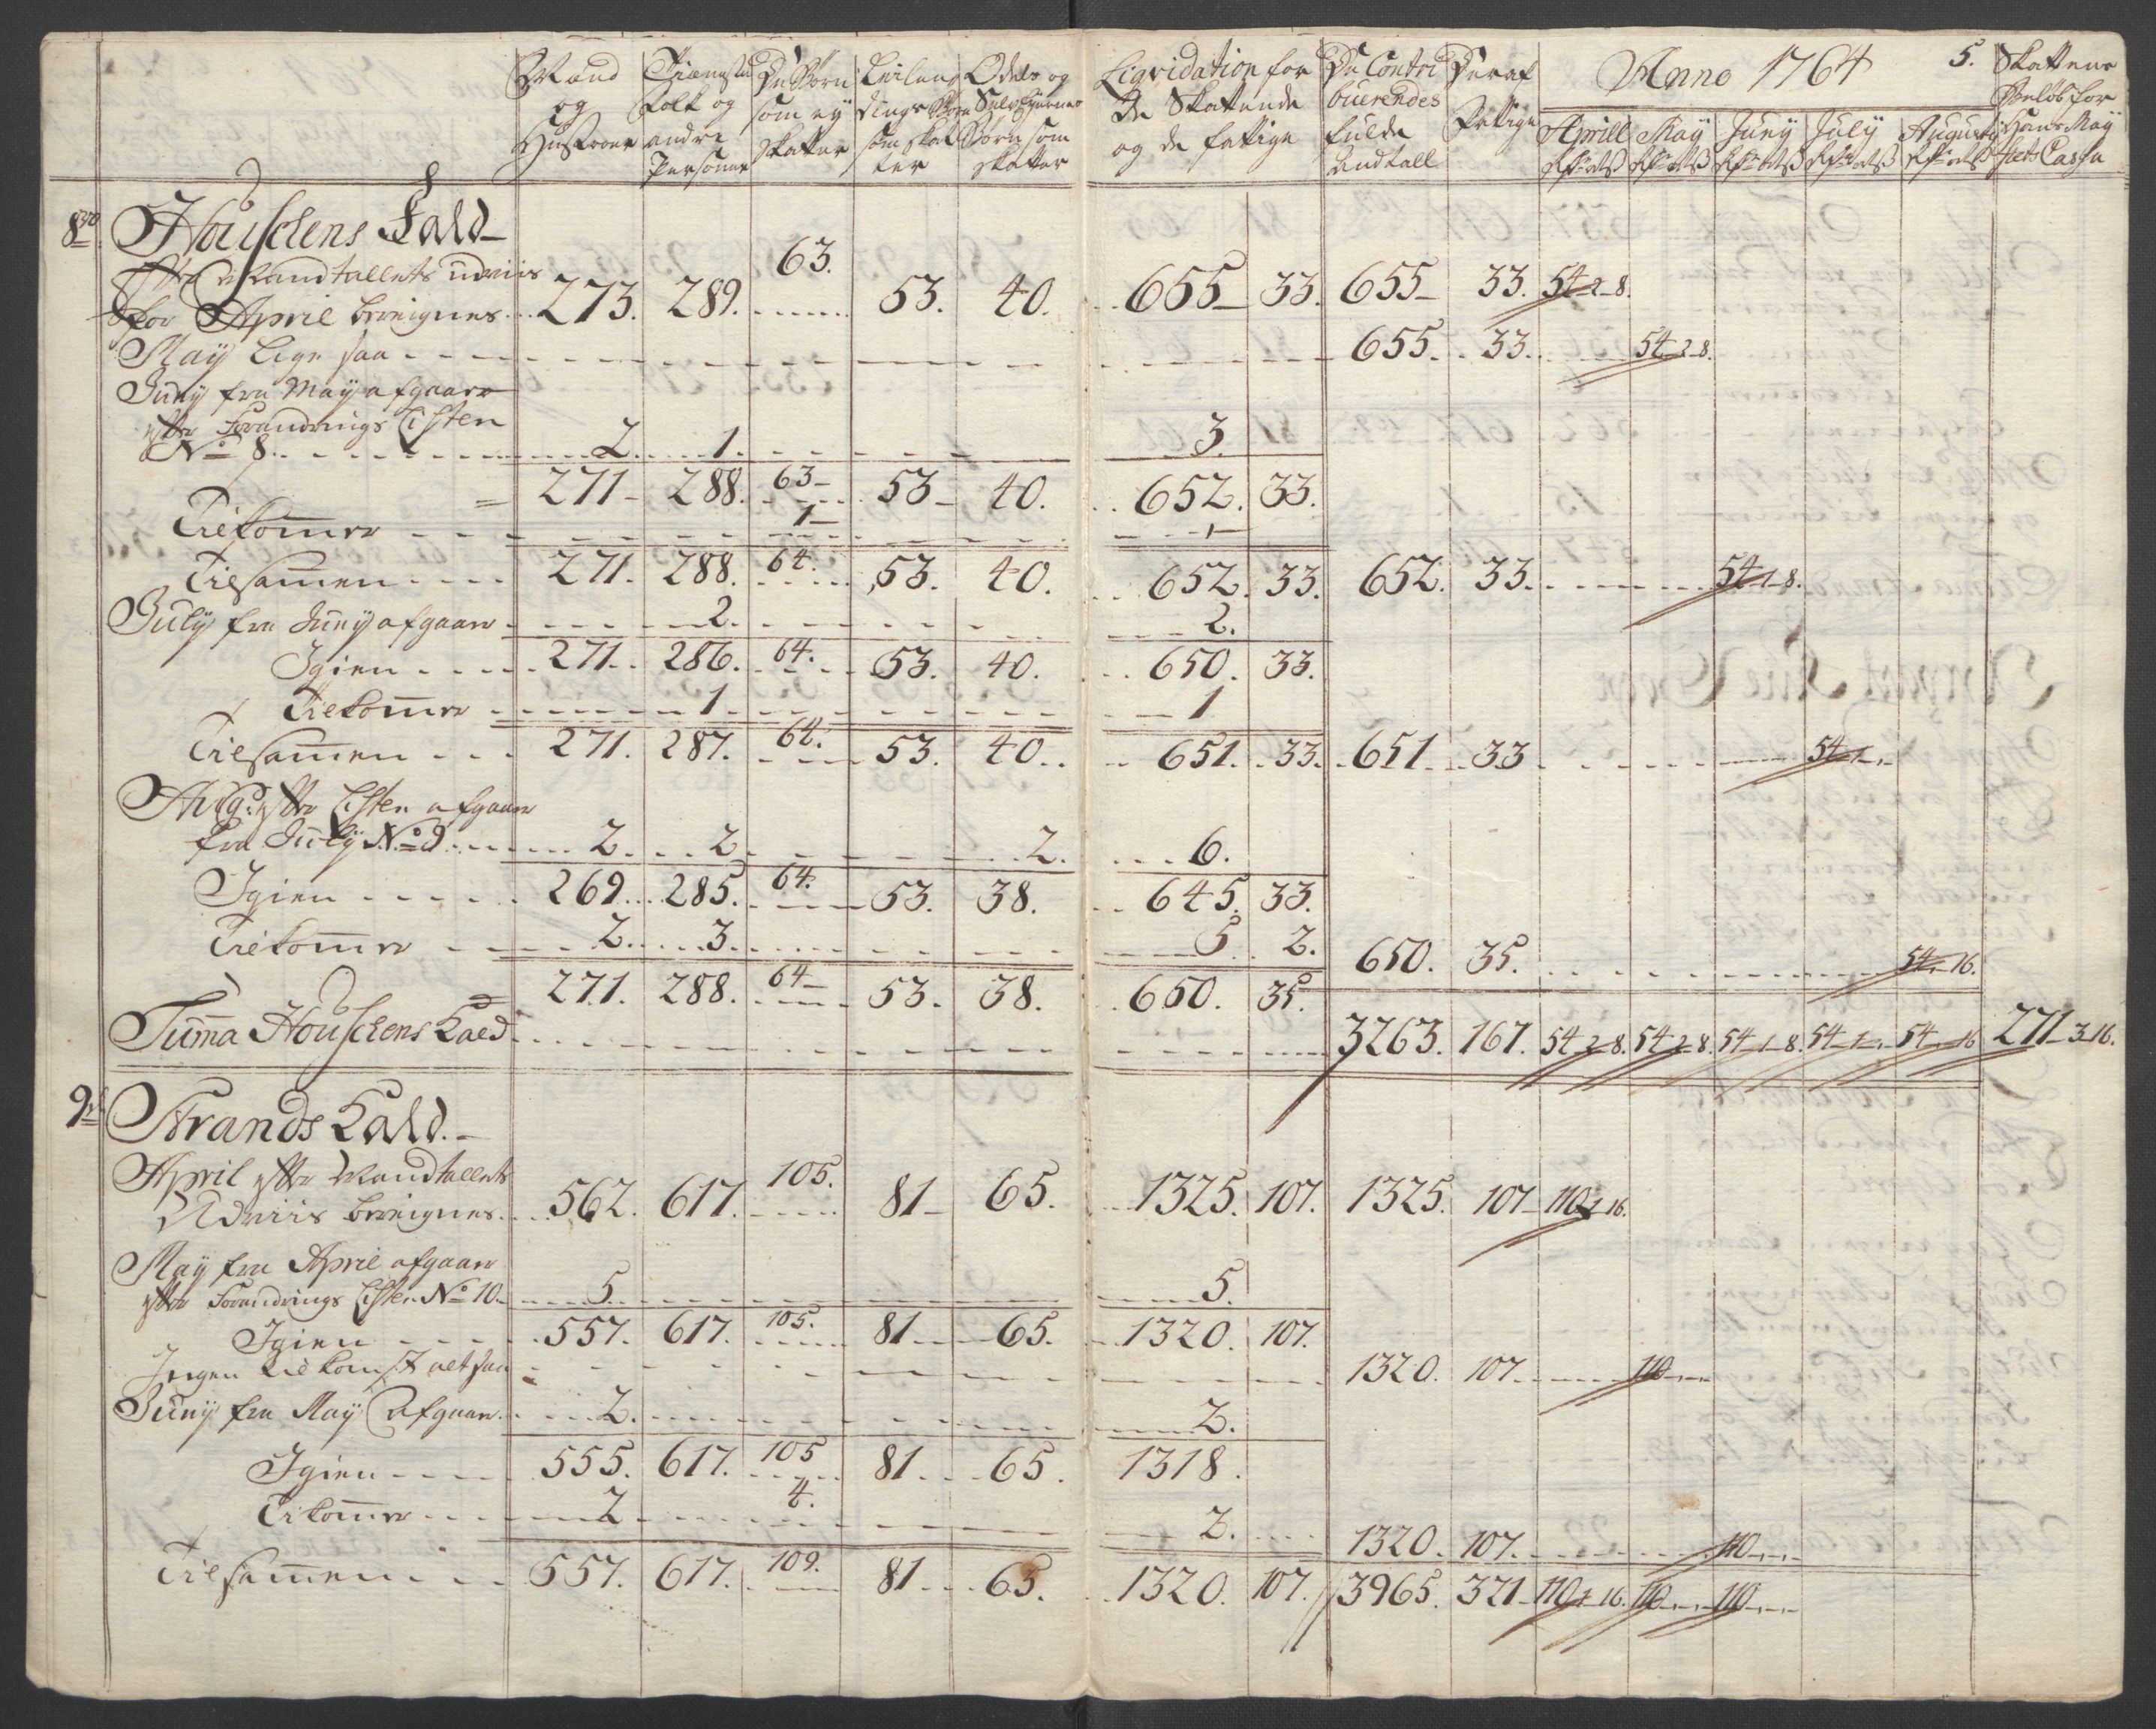 Mænd og Hustroer | Tienste Folk og andre Personer | De Børn som ey skatter | Leilændings Børn som skatter | Odels og Selv Eyernes Børn som skatter | Liqvidation for De Skattende og de fattige | De Contribuerendes fulde Andtall | Deraf Fattige | Anno 1764 | 5. | Skattens Beløb for Hans May hets Cassa
Aprill | May | Juny | July | Augusty
8de Houschens Kald
Efter Mandtallets udviis
for April bereignes 273. 289. 63. 53. 40. 655 33. 655 33. 54-2-8.
May lige saa 655. 33. 54-2-8.
Juny fra May afgaar
efter Forandrings Listen
No 8. 2. 1. 3.
271 288. 63 53 40. 652. 33.
Tilkomer 1 1
Tilsamen 271. 288. 64. 53. 40. 652. 33. 652. 33. 54-1-8.
July fra Juny afgaar 2. 2.
Igien 271. 286. 64. 53. 40. 650. 33.
Tilkomer 1. 1
Tilsamen 271. 287. 64. 53. 40. 651. 33. 651 33 54-1-
Aug: efter Listen afgaar
fra July No 9 2. 2. 2. 6.
Igien 269. 285. 64. 53. 38. 645. 33.
Tilkomer 2. 3. 5 2. 650. 35. 54-16.
271. 288. 64 53. 38. 650. 35.
Suma Houschens Kald 3263. 167. 54-2-8. 54-2-8. 54-1-8. 54-1- 54-16 271-3-16.
9de Strands Kald.
April efter Mandtallets
Udviis bereignes 562. 617. 105. 81 65. 1325. 107. 1325. 107 110-1-16.
May fra April afgaar
efter Forandrings Listen No 10 5. 5.
Igien 557. 617. 105. 81 65. 1320. 107.
Ingen tilkomst altsaa 1320. 107. 110
Juny fra May afgaar 2. 2.
Igien 555. 617. 105 81 65. 1318.
Tilkomer 2 4. 2. 1320. 107. 110
Tilsamen 557. 617. 109. 81 65. 1320. 107. 3965. 321 110-1-16. 110 110